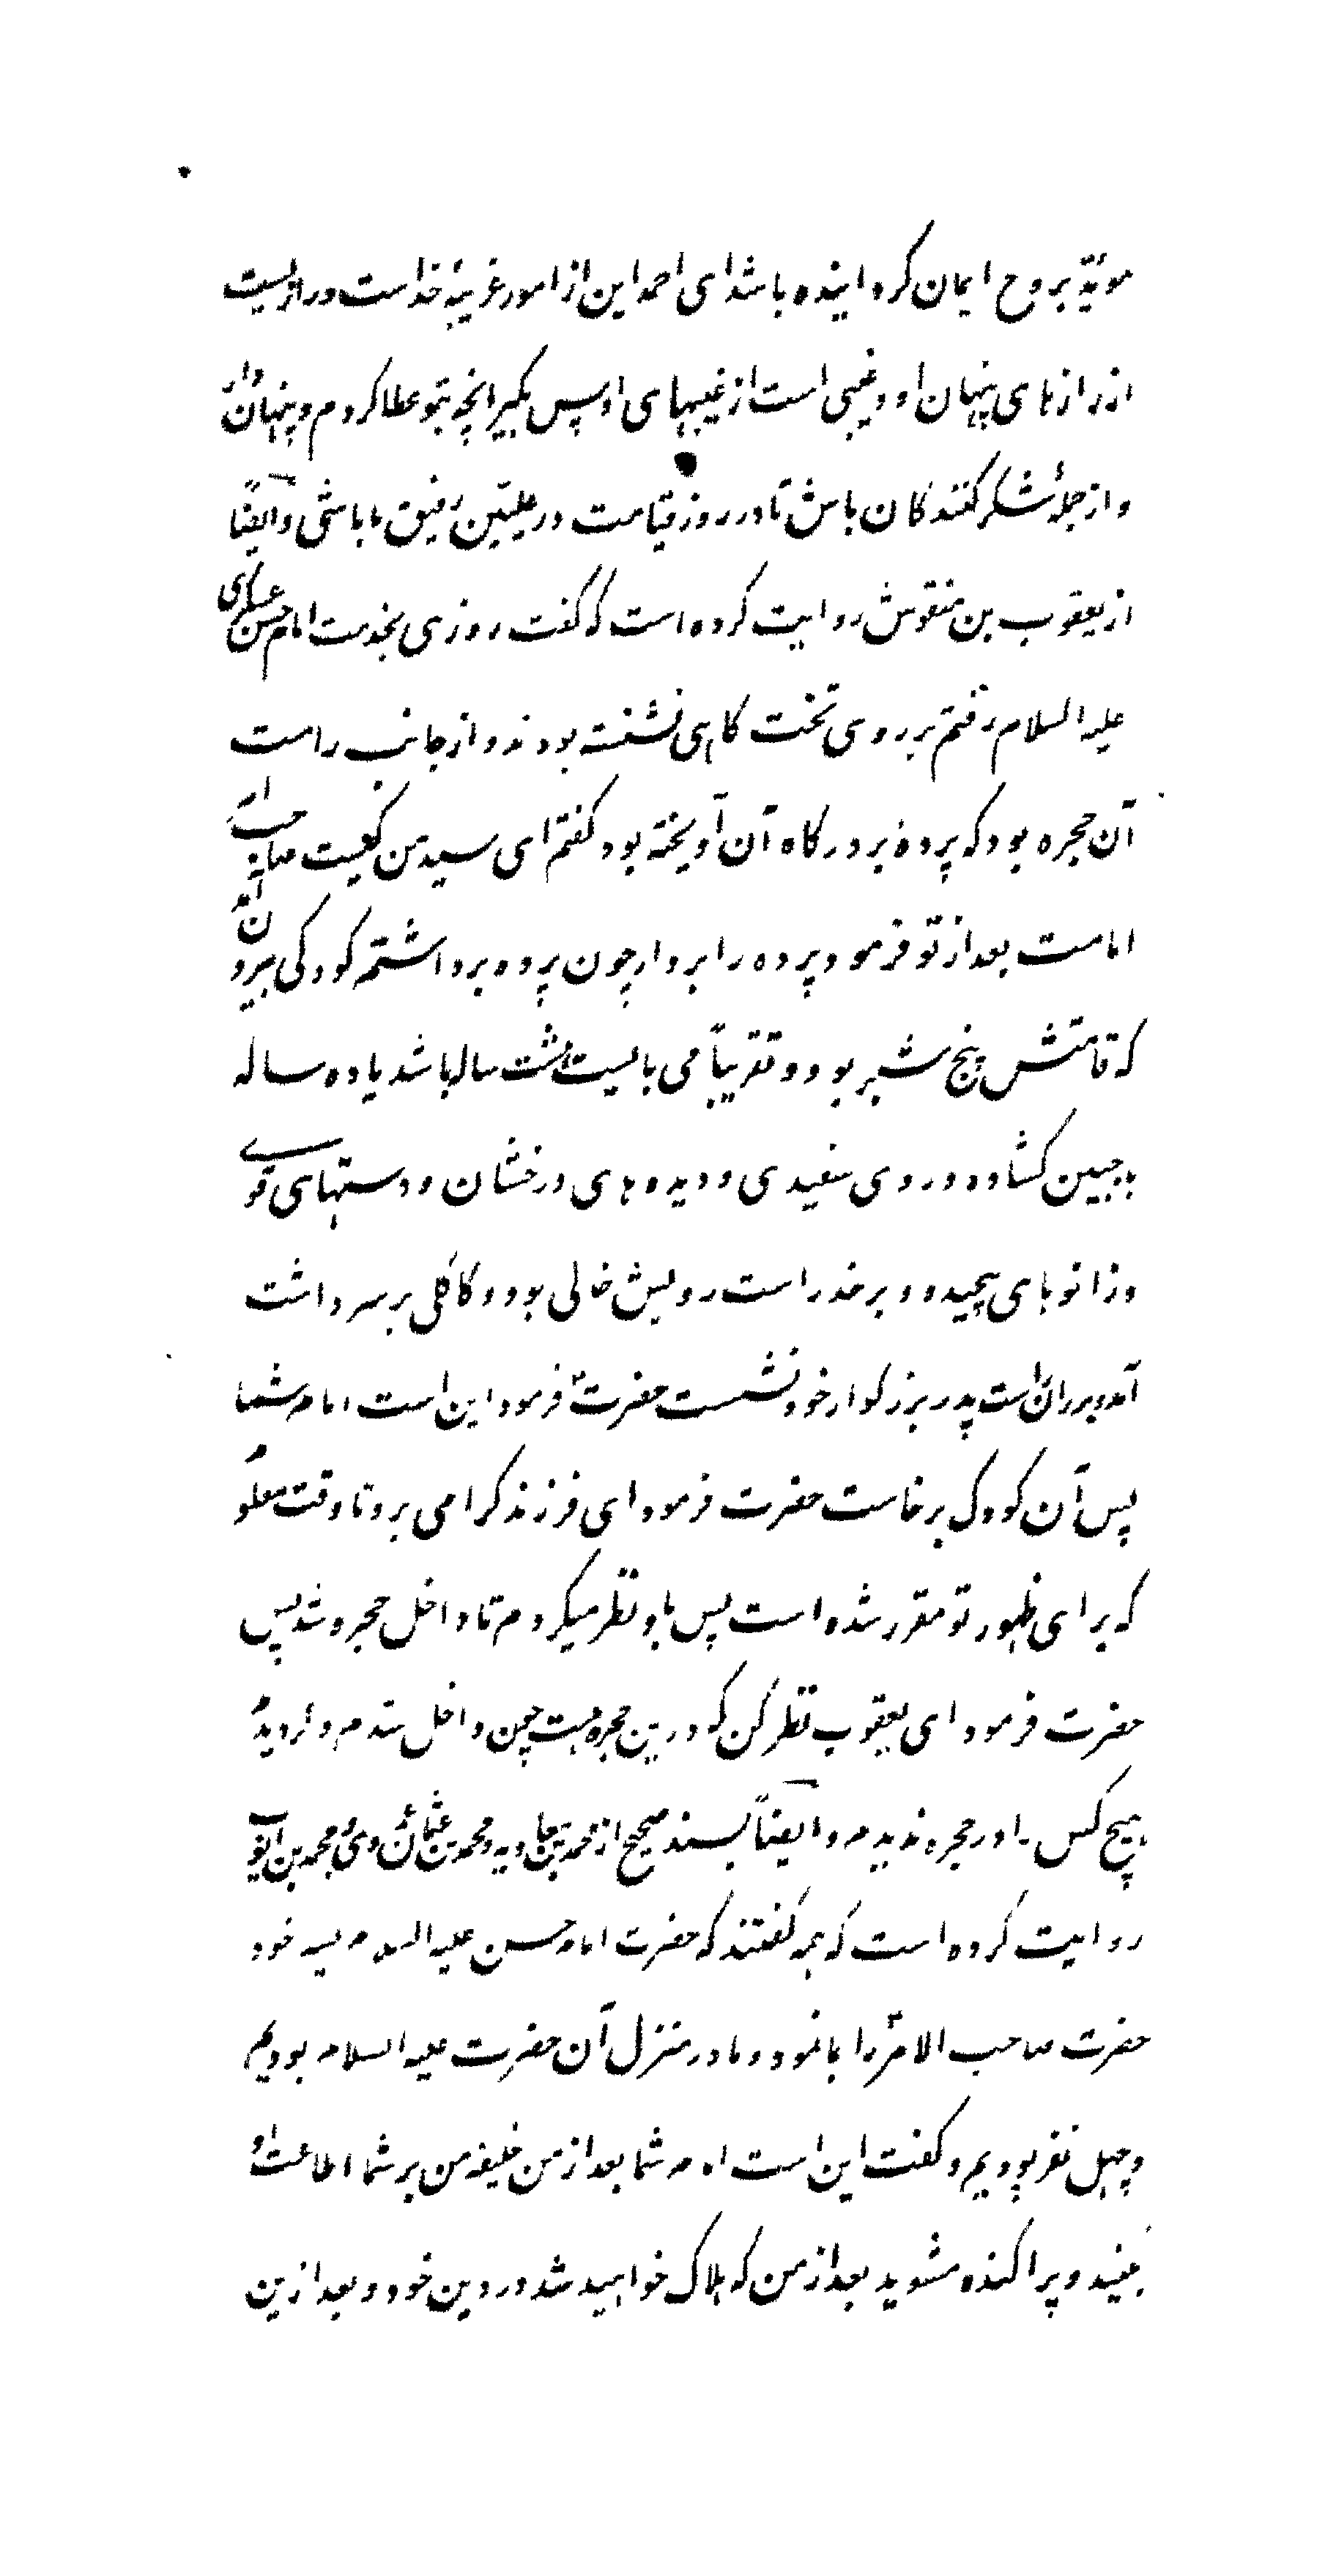 مویّد بروح ایمان کردانیده باشد ای احمد این از امور غریبهٔ خداست و رازیست
از رازهای پنهان او و غیبی است از غیبهای او پس بکیر انچه بتو عطا کردم و پنهان دار
و از جملهٔ شکر کنندکان باش تا در روز قیامت در علیّین رفیق ما باشی و ایضًا
از یعقوب بن منقوش روایت کرده است که کفت روزی بخدمت امام حسن عسکری
علیه السلام رفتم بر روی تخت کاهی نشسته بودند و از جانب راست
آن حجره بود که پردهٔ بر درکاه آن آویخته بود کفتم ای سید من کیست صاحب امر
امامت بعد از تو فرمود پرده را بردار چون پرده برداشتم کودکی بیرون آمد
که قامتش پنج شبر بود و تقریباً می بایست هشت ساله باشد یا ده ساله
با جبین کشاده و روی سفیدی و دیده های درخشان و دستهای قوی
و زانوهای پیچیده و بر خد راست رویش خالی بود و کاکلی بر سر داشت
آمد و بر ران راست پدر بزرکوار خود نشست حضرت فرمود این است امام شما
پس آن کودک برخاست حضرت فرمود ای فرزند کرامی برو تا وقت معلوم
که برای ظهور تو مقرر شده است پس باو نظر میکردم تا داخل حجره شد پس
حضرت فرمود ای یعقوب نظر کن که درین حجره کیست چون داخل شدم و کردیدم
هیچ کس را در حجره ندیدم و ایضاً بسند صحیح از محمد بن معاویه و محمد بن عثمان عمروی و محمد بن ایوب
روایت کرده است که همه کفتند که حضرت امام حسن علیه السلام پسر خود
حضرت صاحب الامر را بما نمود و ما در منزل آن حضرت علیه السلام بودیم
و چهل نفر بودیم و کفت این است امام شما بعد از من و خلیفه من بر شما اطاعت او
بکنید و پراکنده مشوید بعد از من که هلاک خواهید شد در دین خود و بعد ازین